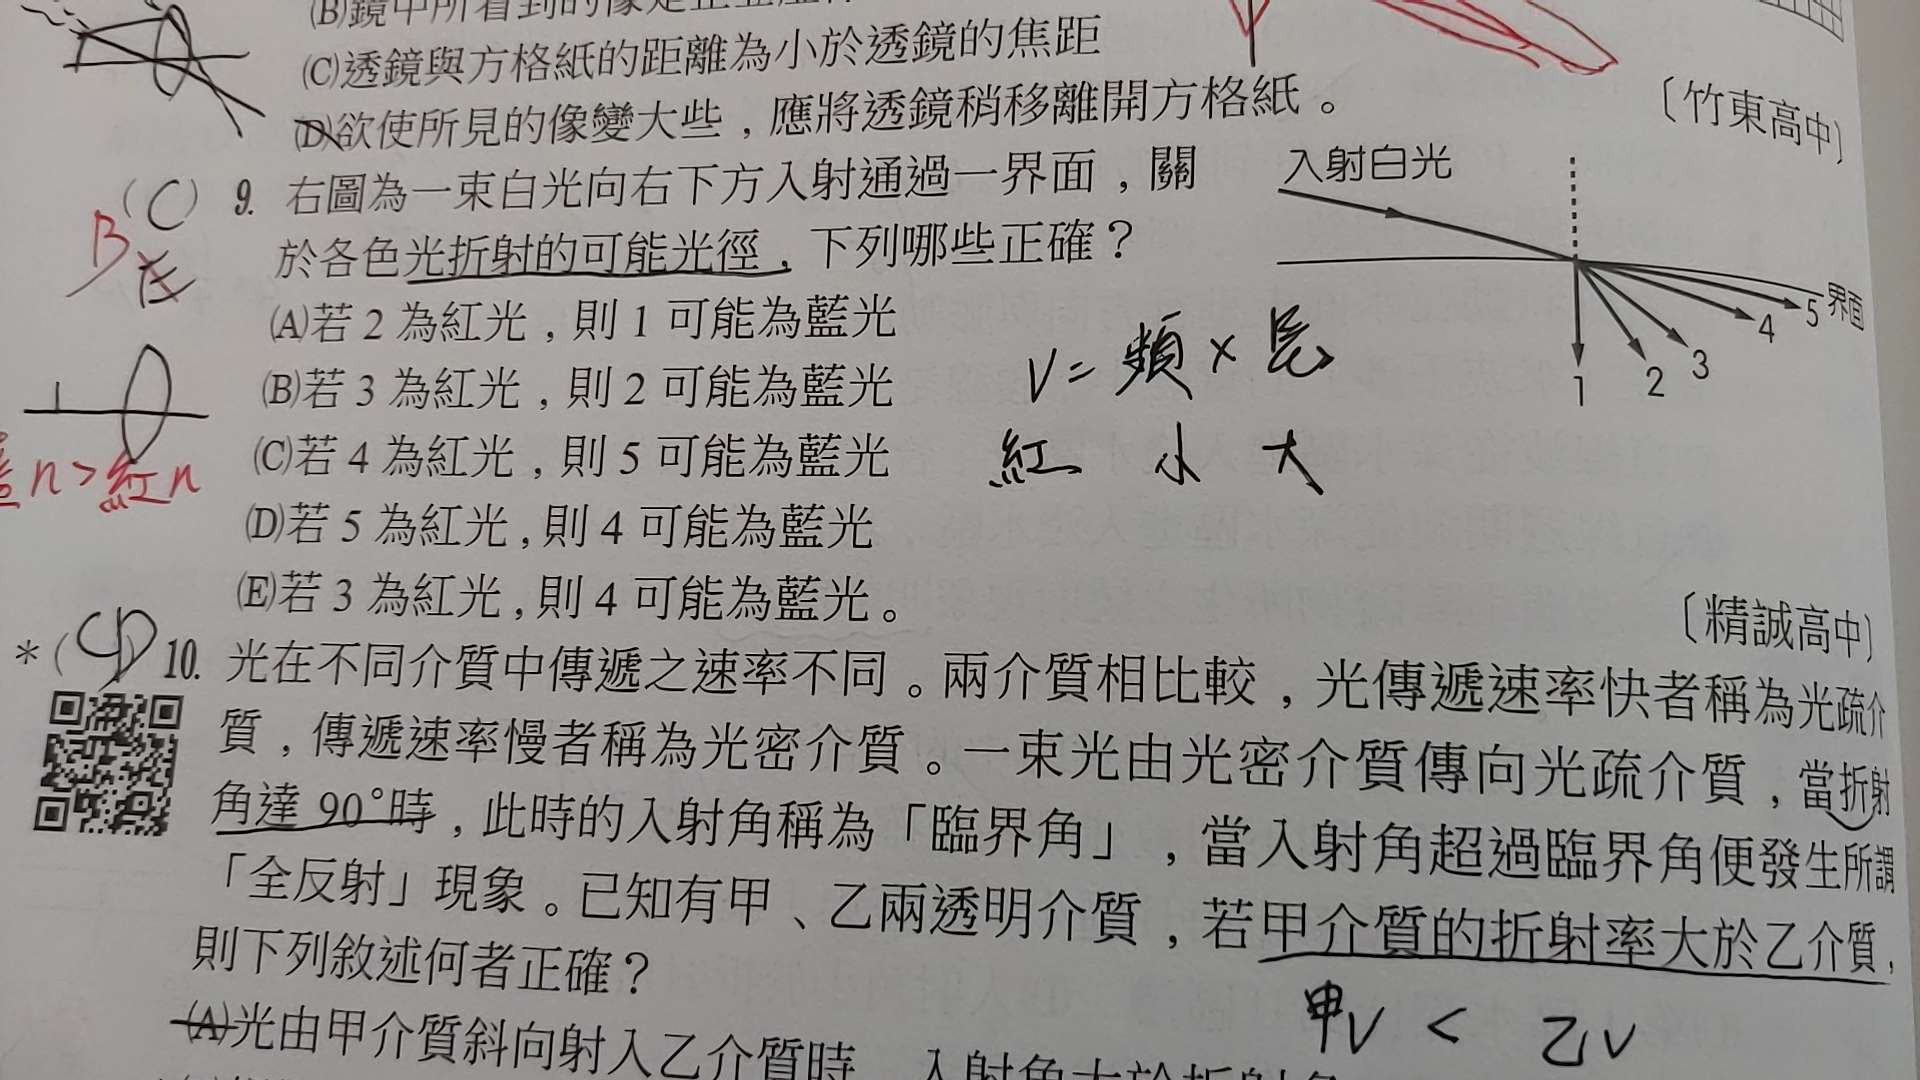 (C)透鏡與方格紙的距離為小於透鏡的焦距
(D)欲使所見的像變大些，應將透鏡稍移離開方格紙。
〔竹東高中〕
(C) 9. 右圖為一束白光向右下方入射通過一界面，關
於各色光折射的可能光徑，下列哪些正確？
B
(A)若 2 為紅光，則 1 可能為藍光
(B)若 3 為紅光，則 2 可能為藍光
(C)若 4 為紅光，則 5 可能為藍光
(D)若 5 為紅光，則 4 可能為藍光
(E)若 3 為紅光，則 4 可能為藍光。
〔精誠高中〕
入射白光
界面
1 2 3 4 5
V = 頻 × 長
紅 小 大
n > 紅 n
* ( ) 10. 光在不同介質中傳遞之速率不同。兩介質相比較，光傳遞速率快者稱為光疏介
質，傳遞速率慢者稱為光密介質。一束光由光密介質傳向光疏介質，當折射
角達 90°時，此時的入射角稱為「臨界角」，當入射角超過臨界角便發生所謂
「全反射」現象。已知有甲、乙兩透明介質，若甲介質的折射率大於乙介質，
則下列敘述何者正確？
甲V < 乙V
(A)光由甲介質斜向射入乙介質時